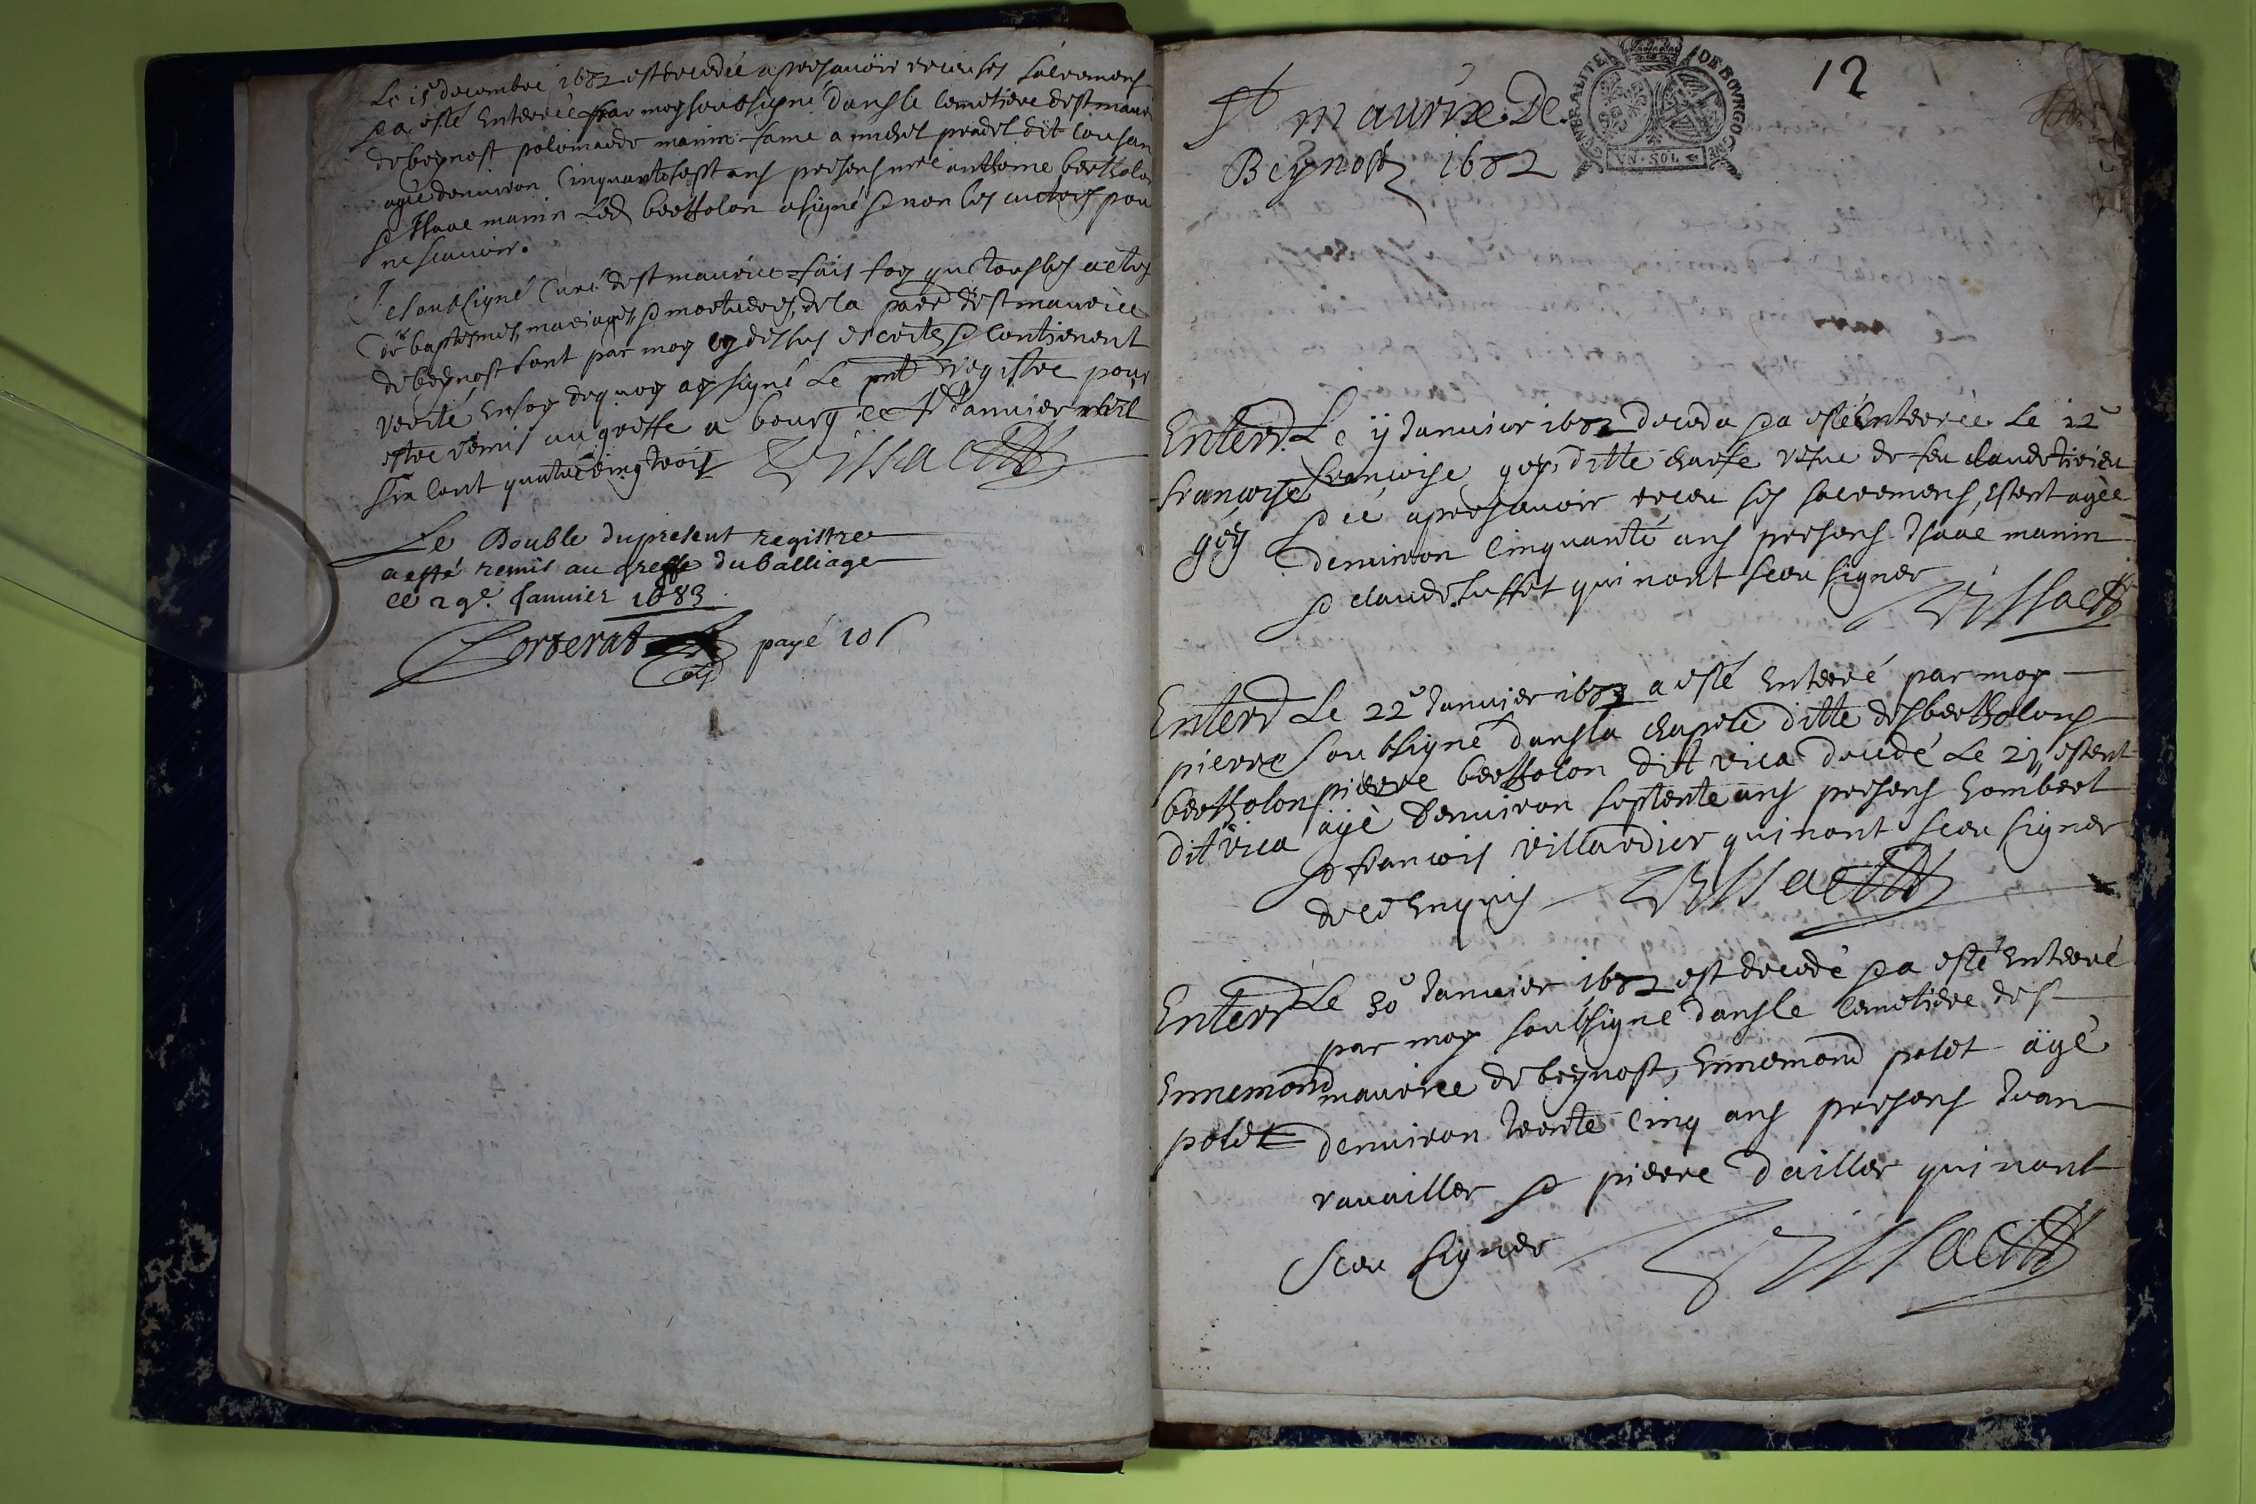 Le 15 decembre 1682 est decedée apres avoir receu ses sacremens
& a esté enterrée par moy soubsigné dans le cemetiere de st maurice
de beynost polemande manin fame a michel pradel dit
agée denviron cinquante sept ans presens mre anthoine bertholon
& manin led bertholon a signé & non les autres pour
ne scavoir.
Je soubsigné Curé de st maurice fais foy que tous les actes
de baptesmes, mariages & mortueres, de la parr de st maurice
de beynost sont par moy cy dessus escrites & contienent
verité en foy de quoy ay signé le pnt registre pour
estre remis au greffe a bourg ce janvier mil
six cent quatre vingt trois
Le Double du present registre
a esté remis au greffe du balliage
ce 29e. Janvier 1683
payé 10 s
12
GENERALITE DE BOURGOGNE
VN·SOL
St maurixe. De.
Beynost 1682
Enterr. Le 11 Janvier 1682 deceda & a esté enterrée Le 12
francoise francoise goy, ditte vefve de feu claude
goy & ce apres avoir receu ses sacremens, estent agée
denviron cinquante ans presens manin
& claude qui nont sceu signer
Enterr Le 22e Janvier 1682 a esté enterré par moy
pierre soubsigné dans la chapele ditte des bertholons
bertholon pierre bertholon dit vica decedé Le 21, estent
dit vica agé denviron septente ans presens hombert
& francois villardier qui nont sceu signer
de ce enquis
Enterr Le 30e Janvier 1682 est decedé & a esté enterré
par moy soubsigné dans le cemetiere de st
Ennemond maurice de beynost, Ennemond polet agé
polet denviron trente cinq ans presens Jean
ravailler & pierre dailler qui nont
sceu signer